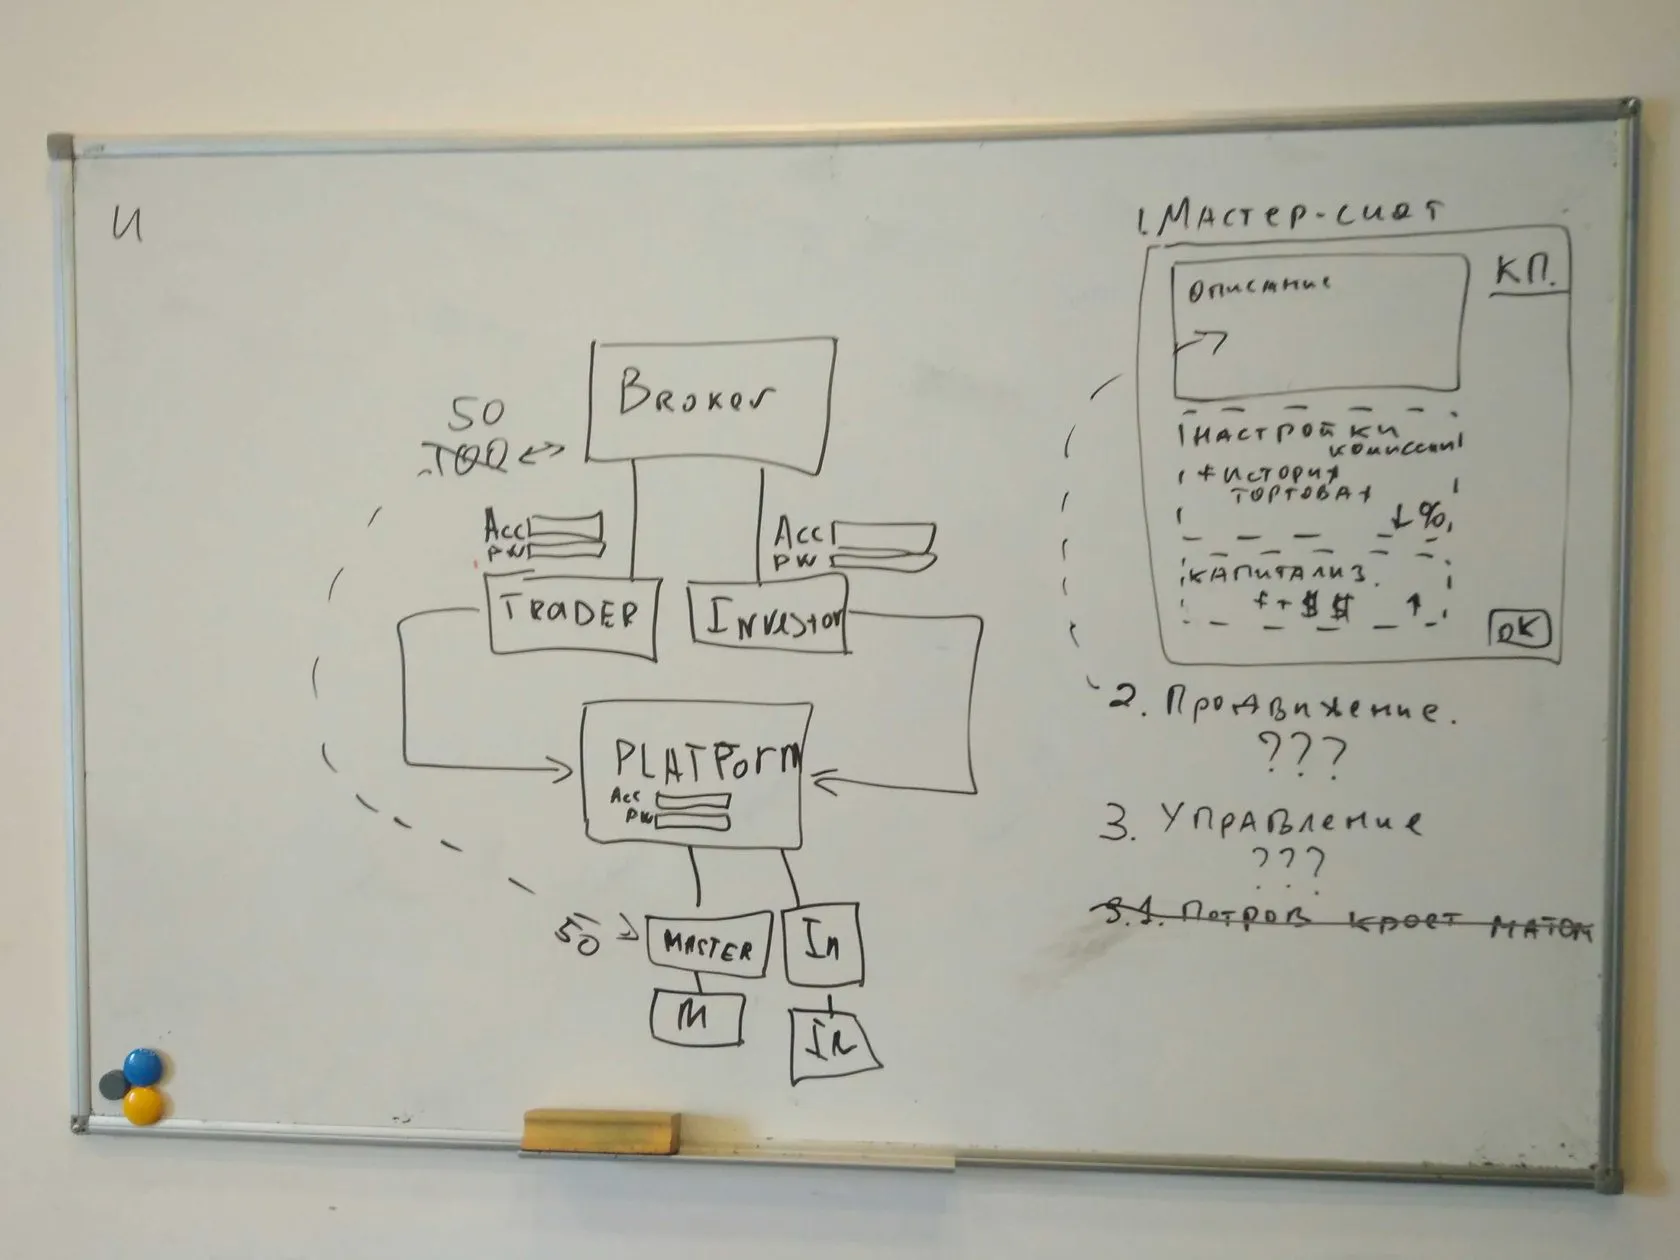 И
Broker
50
100
Acc
PW
Acc
PW
TRADER
Investor
PLATForm
Acc
PW
50
MASTER
In
M
In
1. МАСТЕР-СЧЕТ
КП.
ОПИСАНИЕ
НАСТРОЙКИ
КОМИССИИ
+ ИСТОРИЯ
ТОРГОВАЯ
↓ %
КАПИТАЛИЗ.
++ $ $ ↑
OK
2. ПРОДВИЖЕНИЕ.
???
3. УПРАВЛЕНИЕ
???
3.1. ПОТРОВ КРОЕТ МАТОМ